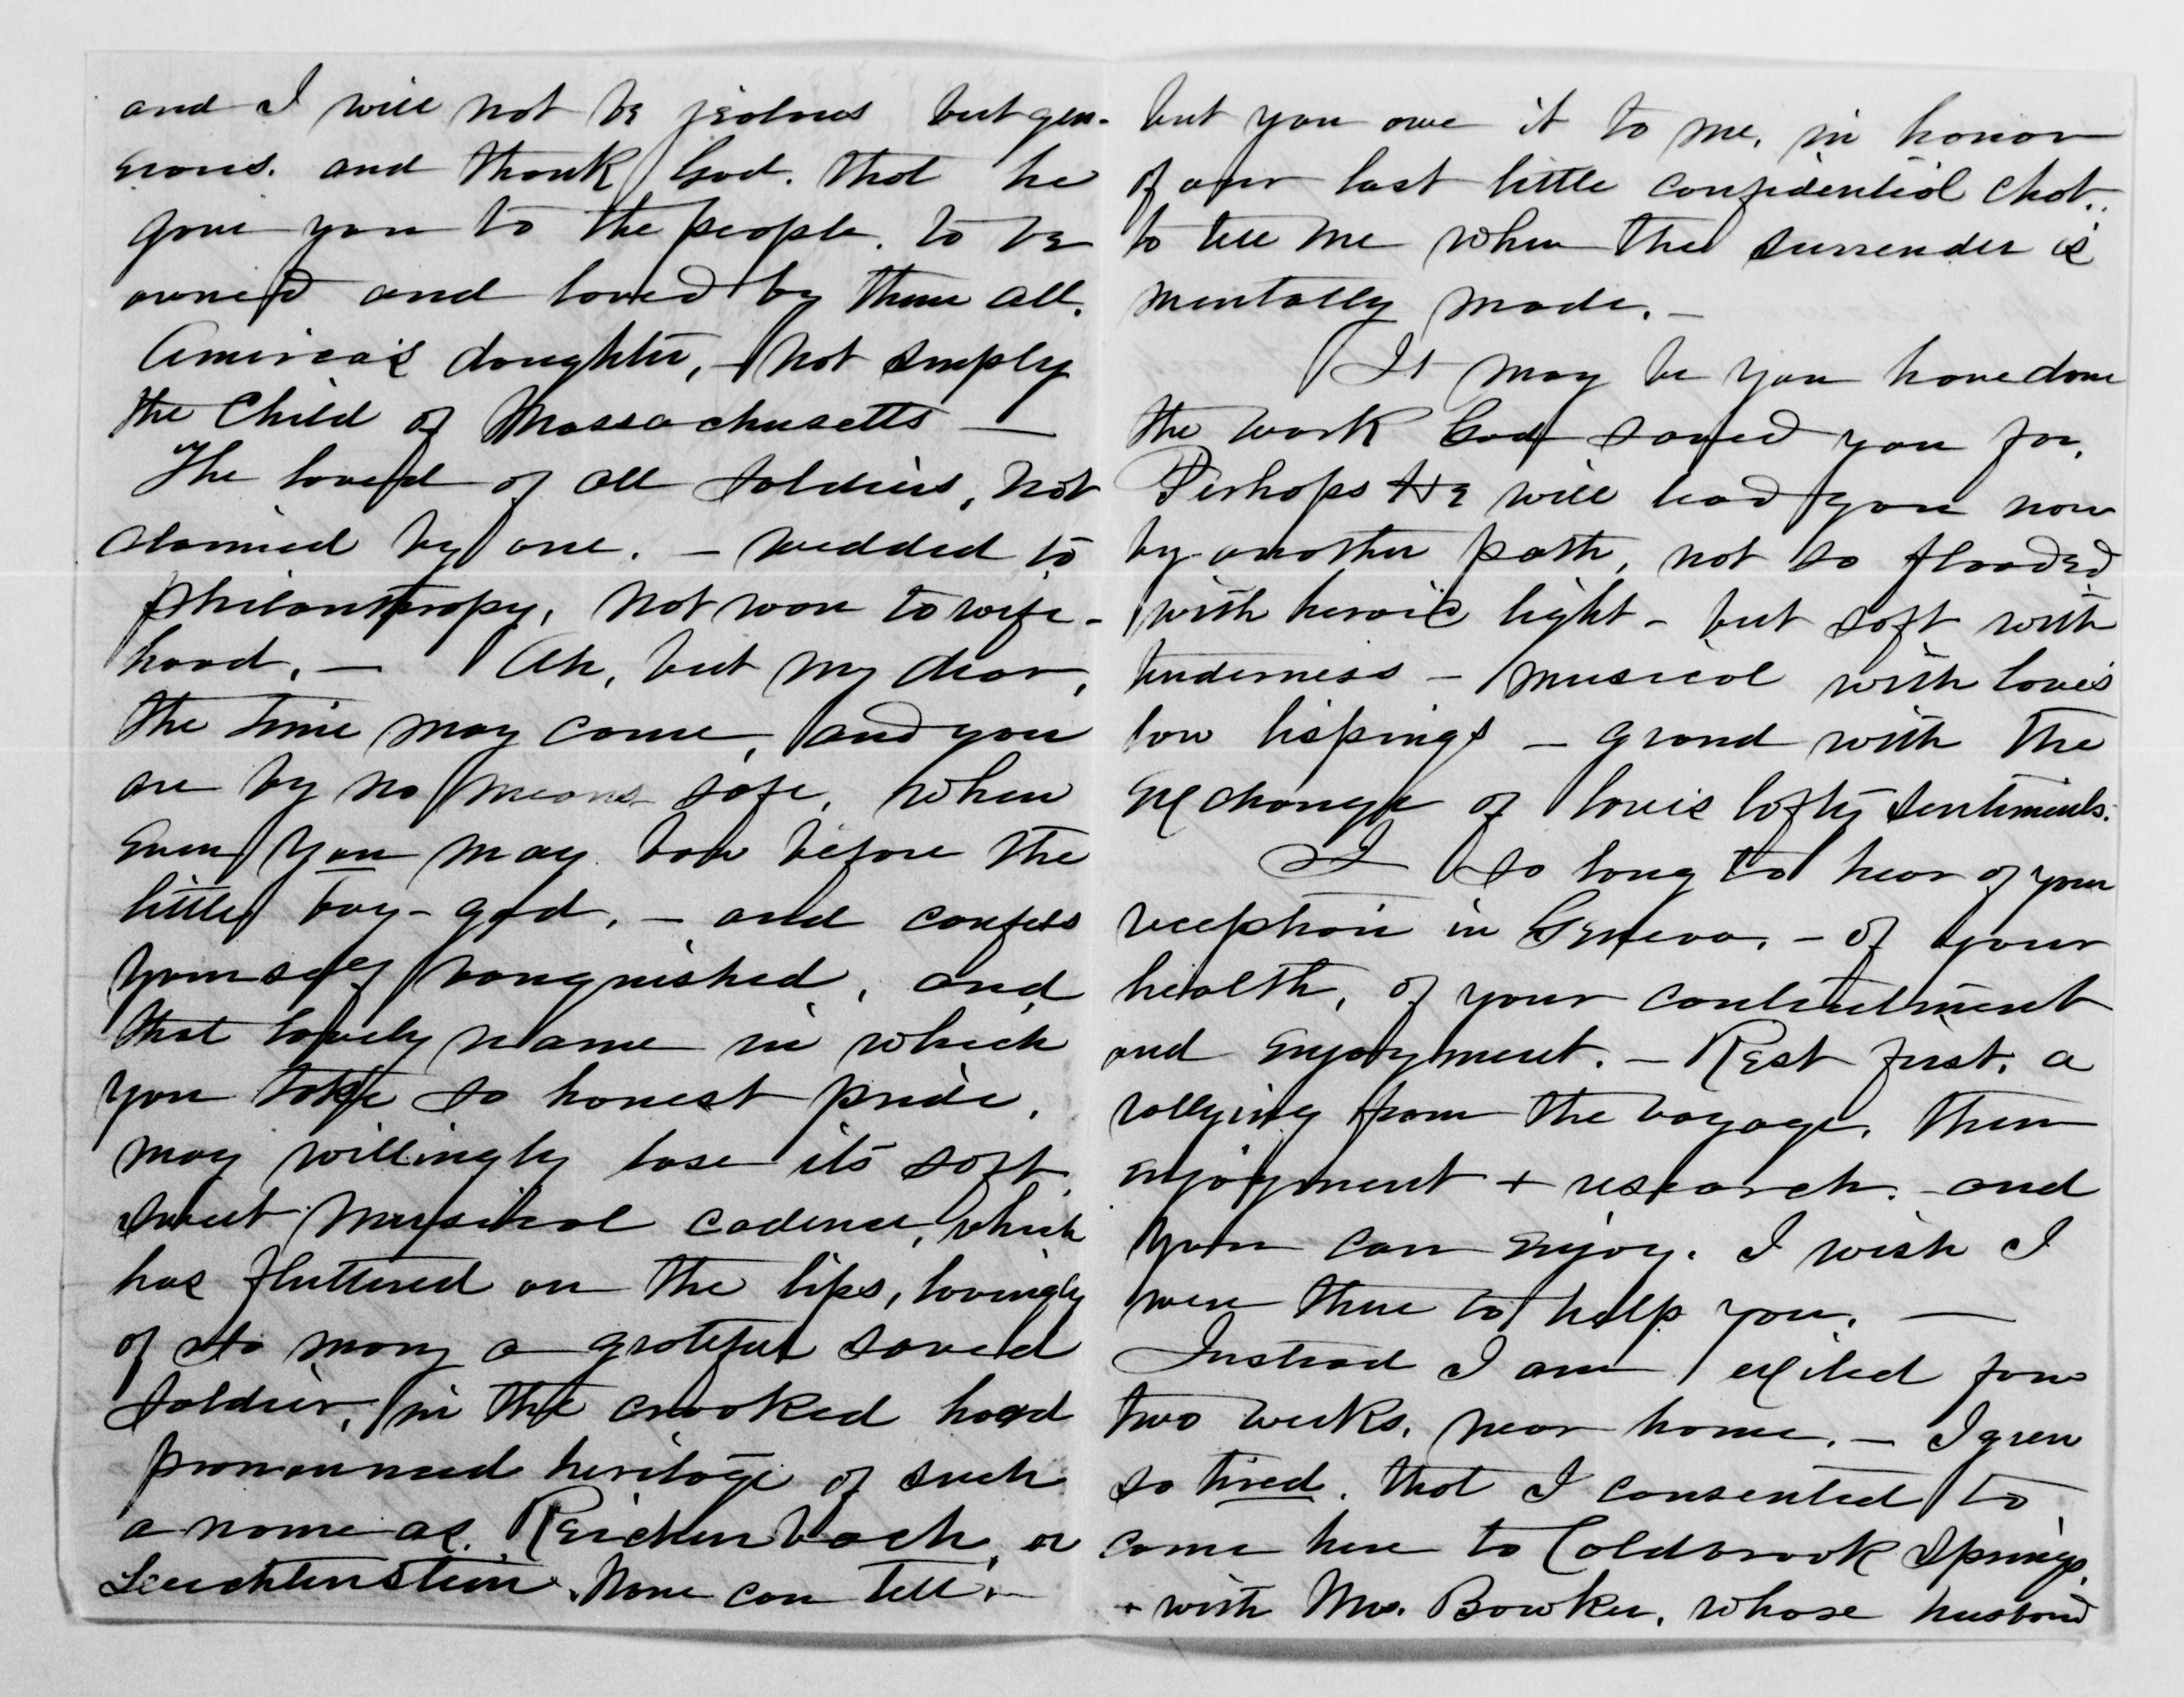 and I will not be jealous but gen-
erous. and thank God. that he
gave you to the people. to be
owned and loved by them all.
America's daughter, - not simply
the Child of Massachusetts —
The loved of all soldiers, not
claimed by one. - wedded to
philanthropy, not won to wife-
hood. — Ah, but my dear,
the time may come, and you
are by no means safe, when
even you may bow before the
little boy-god. - and confess
yourself vanquished, and
that lovely name in which
you take so honest pride,
may willingly lose its soft
sweet musical cadence, which
has fluttered on the lips, lovingly
of so many a grateful saved
soldier, in the crooked hard
pronounced heritage of such
a name as. Reichenbach, or
Leuchtenstein. None can tell. -
but you owe it to me, in honor
of our last little confidential chat.
to tell me when the surrender is
mentally made. -
It may be you have done
the work God saved you for.
Perhaps He will lead you now
by another path, not so flooded
with heroic light - but soft with
tenderness - musical with love's
low lispings - grand with the
exchange of love's lofty sentiments.
I so long to hear of your
reception in Geneva. - of your
health, of your contentment
and enjoyment. - Rest first, a
rallying from the voyage, then
enjoyment + research. and
you can enjoy. I wish I
were there to help you. —
Instead I am exiled for
two weeks, near home. - I grew
so tired. that I consented to
come here to Coldbrook Springs,
+ with Mrs. Bowker, whose husband